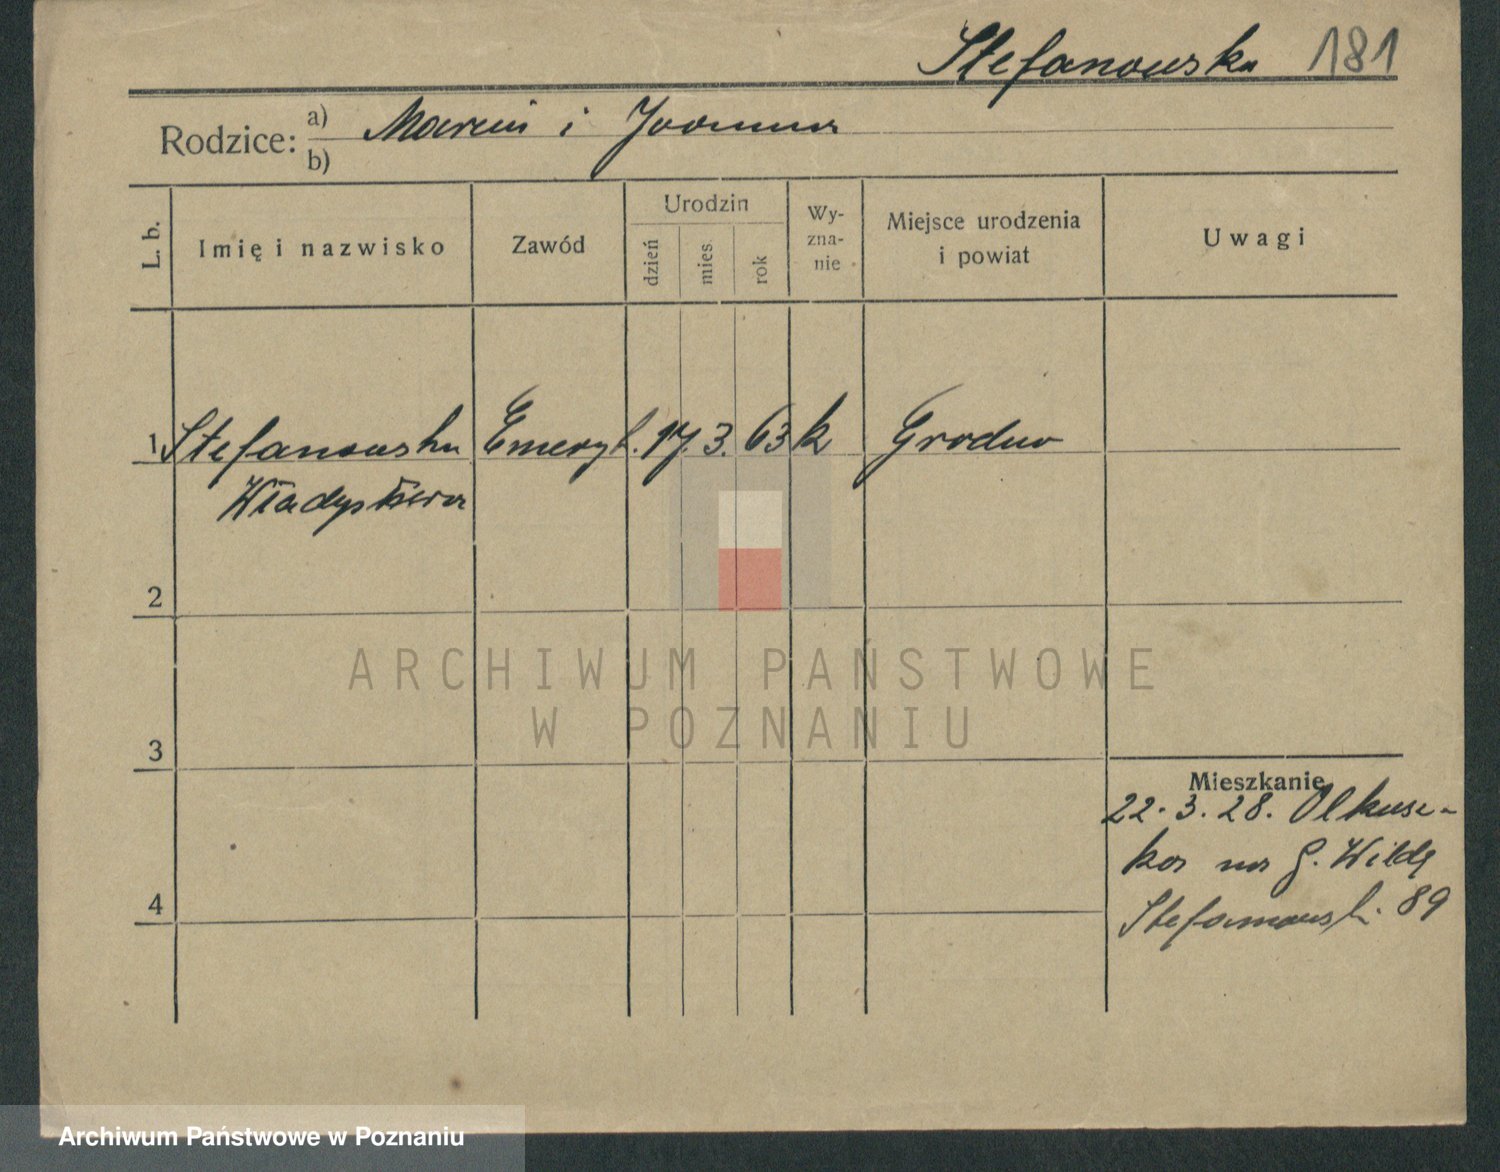 Stefanowska 181
Rodzice: a) Marcin i Joanna
b)
L. b.
Imię i nazwisko
Zawód
Urodzin
dzień
mies.
rok
Wy-
zna-
nie
Miejsce urodzenia
i powiat
Uwagi
1 Stefanowska Emeryt. 17. 3. 63 k Grodno
Władysława
2
3
4
Mieszkanie
22. 3. 28. Olkusz-
ka na G. Wildę
Stefanowsk. 89
ARCHIWUM PAŃSTWOWE
W POZNANIU
Archiwum Państwowe w Poznaniu